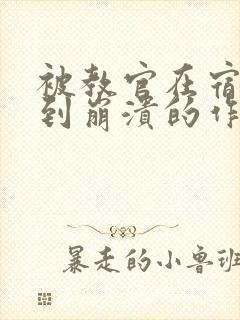 被教官在宿
到崩溃的作
暴走的小鲁班